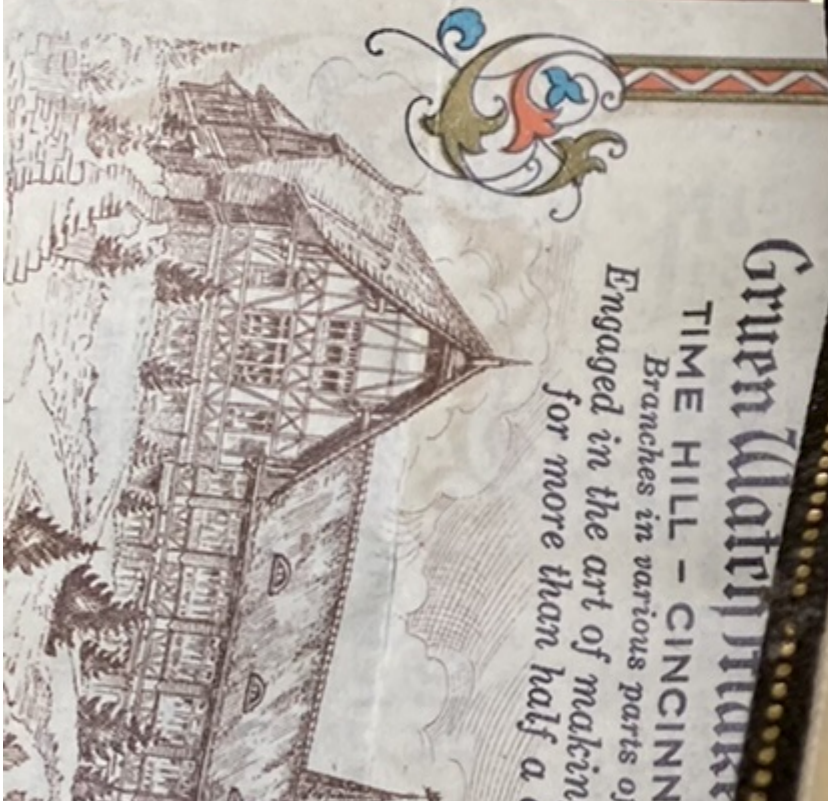 Gruen Watch
TIME HILL – CINCINN
Branches in various parts of
Engaged in the art of makin
for more than half a